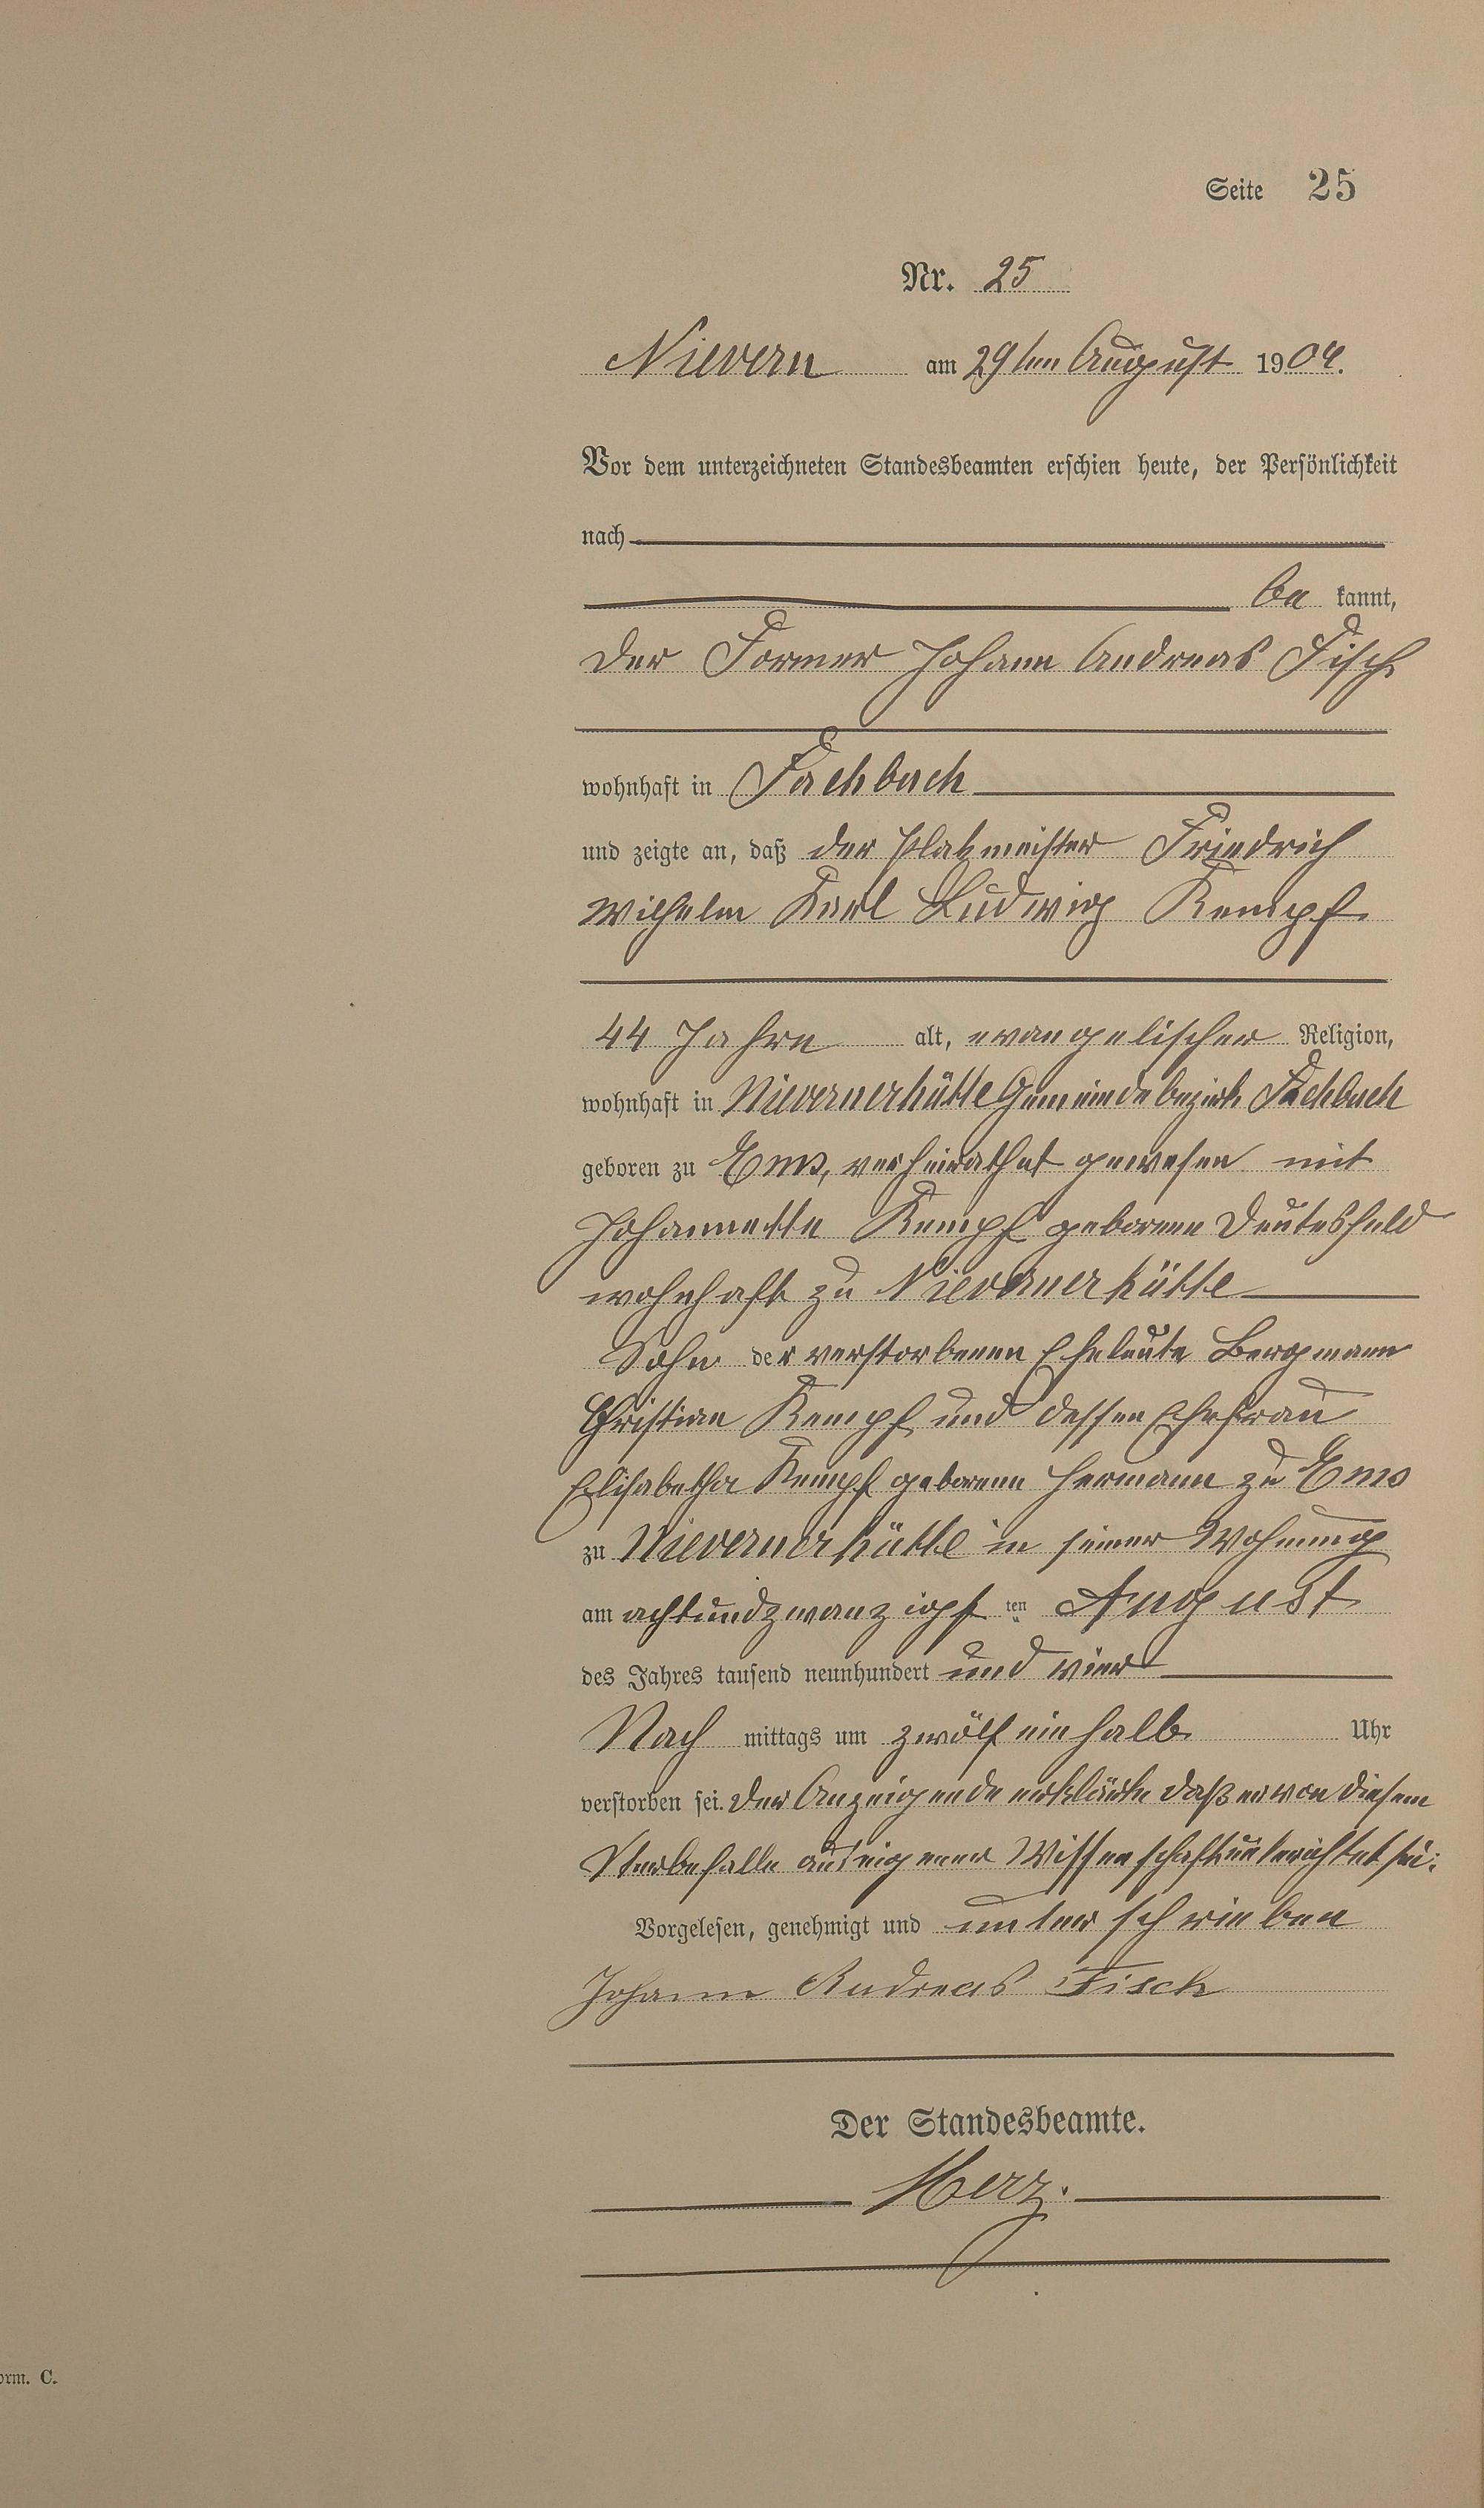 Seite 25
Nr. 25
Nievern am 29ten August 1904.
Vor dem unterzeichneten Standesbeamten erschien heute, der Persönlichkeit
nach
be kannt,
der Former Johann Andreas Fisch
wohnhaft in Fachbach
und zeigte an, daß der Platzmeister Friedrich
Wilhelm Karl Ludwig Kempf
44 Jahre alt, evangelischer Religion,
wohnhaft in Nievernerhütte Gemeindebezirk Fachbach
geboren zu Ems, verheirathet gewesen mit
Johannette Kempf geborene Deutesfeld
wohnhaft zu Nievernerhütte
Sohn der verstorbenen Eheleute Bergmann
Christian Kempf und dessen Ehefrau
Elisabetha Kempf geborene Hermann zu Ems
zu Nievernerhütte in seiner Wohnung
am achtundzwanzigsten August
des Jahres tausend neunhundert und vier
Nach mittags um zwölf einhalb Uhr
verstorben sei. Der Anzeigende erklärte daß er von diesem
Sterbefalle aus eigener Wissenschaft unterrichtet sei.
Vorgelesen, genehmigt und unterschrieben
Johann Andreas Fisch
Der Standesbeamte.
Merz.
orm. C.